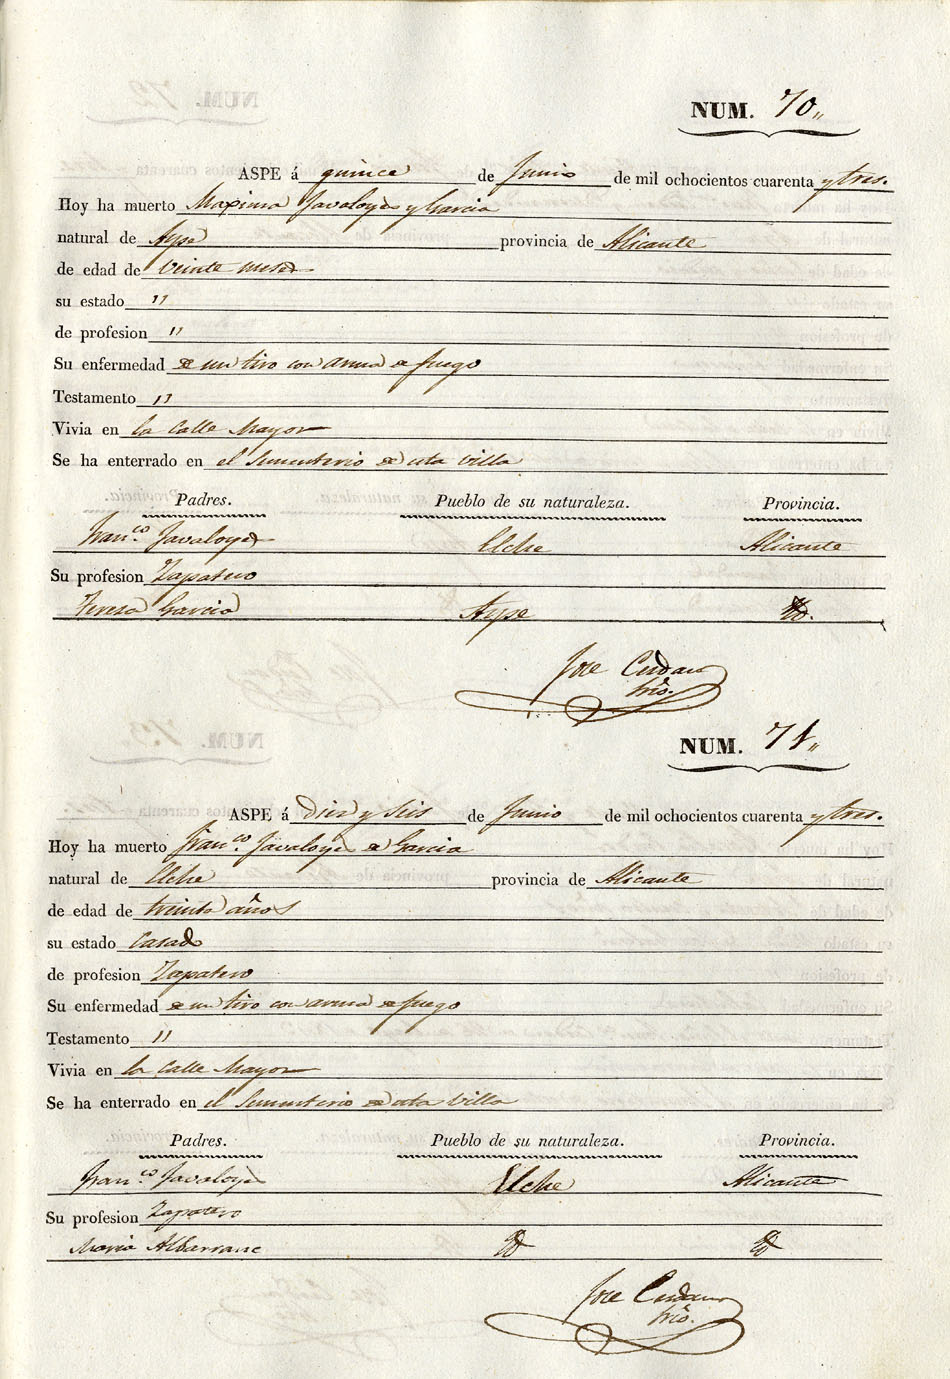 NUM. 70,,
ASPE á quince de Junio de mil ochocientos cuarenta y tres.
Hoy ha muerto Maxima Javaloyes y Garcia
natural de Aspe provincia de Alicante
de edad de veinte meses
su estado "
de profesion "
Su enfermedad de un tiro con arma de fuego
Testamento "
Vivia en la Calle Mayor
Se ha enterrado en el Sementerio de esta Villa
Padres. Pueblo de su naturaleza. Provincia.
Fran.co Javaloyes Elche Alicante
Su profesion Zapatero
Teresa Garcia Aspe Yd.
Jose Cerdan
NUM. 71,,
ASPE á diez y seis de Junio de mil ochocientos cuarenta y tres.
Hoy ha muerto Fran.co Javaloyes de Garcia
natural de Elche provincia de Alicante
de edad de treinta años
su estado Casado
de profesion Zapatero
Su enfermedad de un tiro con arma de fuego
Testamento "
Vivia en la Calle Mayor
Se ha enterrado en el Sementerio de esta Villa
Padres. Pueblo de su naturaleza. Provincia.
Fran.co Javaloyes Elche Alicante
Su profesion Zapatero
Maria Albarrane Yd Yd
Jose Cerdan